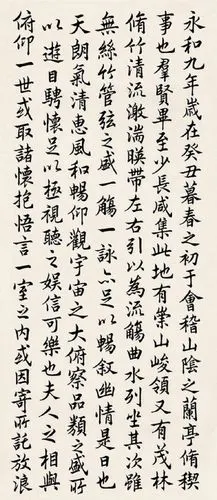 永和九年歲在癸丑暮春之初于會稽山陰之蘭亭脩稧
事也群賢畢至少長咸集此地有崇山峻領又有茂林
脩竹清流激湍暎帶左右引以為流觴曲水列坐其次雖
無絲竹管弦之盛一觴一詠亦足以暢敘幽情是日也
天朗氣清惠風和暢仰觀宇宙之大俯察品類之盛所
以遊目騁懷足以極視聽之娛信可樂也夫人之相與
俯仰一世或取諸懷抱悟言一室之內或因寄所託放浪